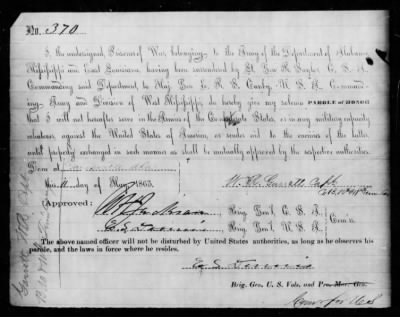 No. 370
I, the undersigned, Prisoner of War, belonging to the Army of the Department of Alabama,
Mississippi and East Louisiana, having been surrendered by Lt. Gen. R. Taylor, C. S. A.
Commanding said Department, to Maj. Gen. E. R. S. Canby, U. S. A. Command-
ing Army and Division of West Mississippi, do hereby give my solemn PAROLE of HONOR
that I will not hereafter serve in the Armies of the Confederate States, or in any military capacity
whatever, against the United States of America, or render aid to the enemies of the latter, until
properly exchanged in such manner as shall be mutually approved by the respective authorities.
Done at
this 11 day of May 1865.
W. R. Garrett Capt
(Approved:)
Brig. Gen'l, C. S. A.
Brig. Gen'l, U. S. A.
Com'rs
The above named officer will not be disturbed by United States authorities, as long as he observes his
parole, and the laws in force where he resides.
Brig. Gen. U. S. Vols, and Pro. Mar. Gen.
Comr for U S
Garrett W R Capt